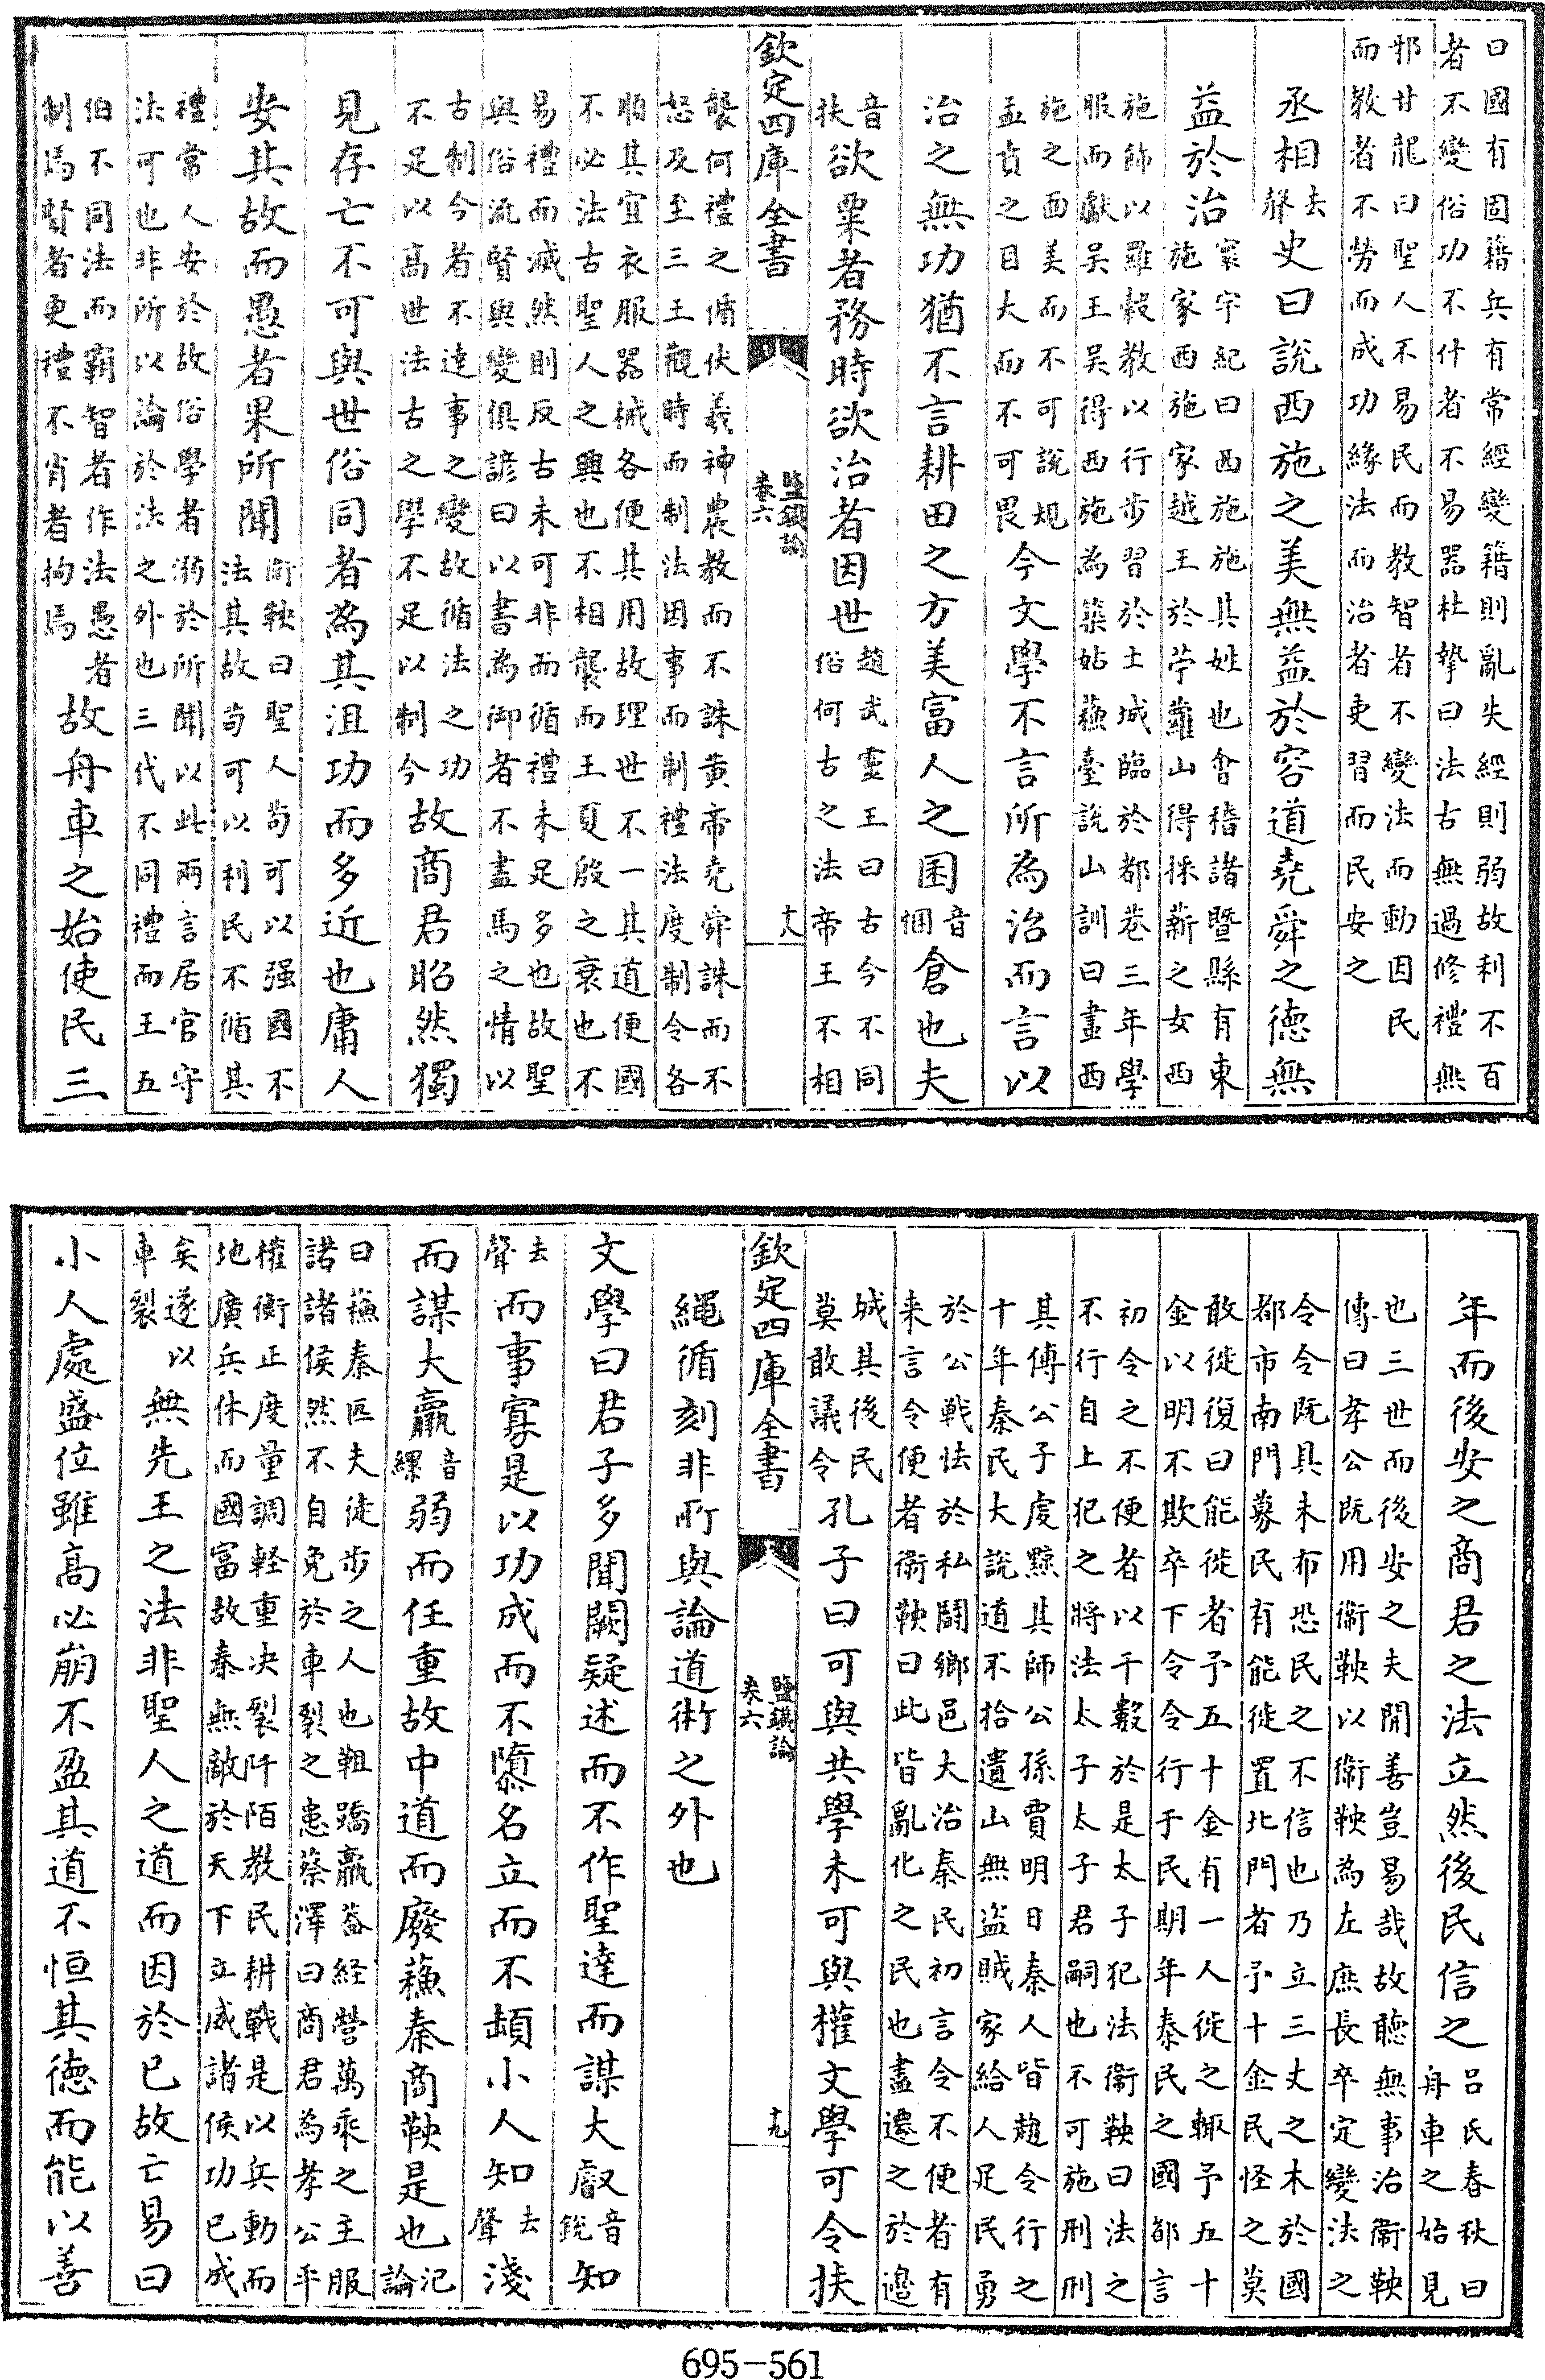 曰國有固籍兵有常經變籍則亂失經則弱故利不百
者不變俗功不什者不易器杜摯曰法古無過修禮無
邪甘龍曰聖人不易民而教智者不變法而動因民
而教者不勞而成功緣法而治者吏習而民安之
丞相去聲史曰說西施之美無益於容道堯舜之德無
益於治寰宇紀曰西施施其姓也會稽諸暨縣有東
施家西施家越王於苧蘿山得採薪之女西
施飾以羅縠教以行步習於土城臨於都巷三年學
服而獻吳王吳得西施為築姑蘇臺說山訓曰畫西
施之面美而不可說規孟賁之目大而不可畏今文學不言所為治而言以
治之無功猶不言耕田之方美富人之囷音倜倉也夫
音扶欲粟者務時欲治者因世趙武靈王曰古今不同
俗何古之法帝王不相
欽定四庫全書 鹽鐵論卷六 十八
襲何禮之循伏羲神農教而不誅黄帝堯舜誅而不
怒及至三王觀時而制法因事而制禮法度制令各
順其宜衣服器械各便其用故理世不一其道便國
不必法古聖人之興也不相襲而王夏殷之衰也不
易禮而滅然則反古未可非而循禮未足多也故聖
與俗流賢與變俱諺曰以書為御者不盡馬之情以
古制今者不達事之變故循法之功不足以高世法古之學不足以制今故商君昭然獨
見存亡不可與世俗同者為其沮功而多近也庸人
安其故而愚者果所聞衛鞅曰聖人苟可以强國不
法其故苟可以利民不循其
禮常人安於故俗學者溺於所聞以此兩言居官守
法可也非所以論於法之外也三代不同禮而王五
伯不同法而霸智者作法愚者制焉賢者更禮不肖者拘焉故舟車之始使民三
年而後安之商君之法立然後民信之吕氏春秋曰
舟車之始見
也三世而後安之夫開善豈易哉故聽無事治衞鞅
傳曰孝公既用衞鞅以衞鞅為左庶長卒定變法之
令令既具未布恐民之不信也乃立三丈之木於國
都市南門募民有能徙置北門者予十金民怪之莫
敢徙復曰能徙者予五十金有一人徙之輒予五十
金以明不欺卒下令令行于民期年秦民之國都言
初令之不便者以千數於是太子犯法衞鞅曰法之
不行自上犯之將法太子太子君嗣也不可施刑刑
其傅公子虔黥其師公孫賈明日秦人皆趨令行之
十年秦民大說道不拾遺山無盗賊家給人足民勇
於公戰怯於私鬭鄉邑大治秦民初言令不便者有
来言令便者衞鞅曰此皆亂化之民也盡遷之於邊
城其後民莫敢議令孔子曰可與共學未可與權文學可令扶
繩循刻非所與論道術之外也
欽定四庫全書 鹽鐵論卷六 十九
文學曰君子多聞闕疑述而不作聖達而謀大叡音鋭知
去聲而事寡是以功成而不隳名立而不頓小人知去聲淺
而謀大羸音縲弱而任重故中道而廢蘇秦商鞅是也記論
曰蘇秦匹夫徒步之人也靻蹻羸葢経營萬乘之主服
諾諸侯然不自免於車裂之患蔡澤曰商君為孝公平
權衡正度量調輕重决裂阡陌教民耕戰是以兵動而
地廣兵休而國富故秦無敵於天下立威諸侯功已成
矣遂以車裂無先王之法非聖人之道而因於已故亡易曰
小人處盛位雖高必崩不盈其道不恒其德而能以善
695-561